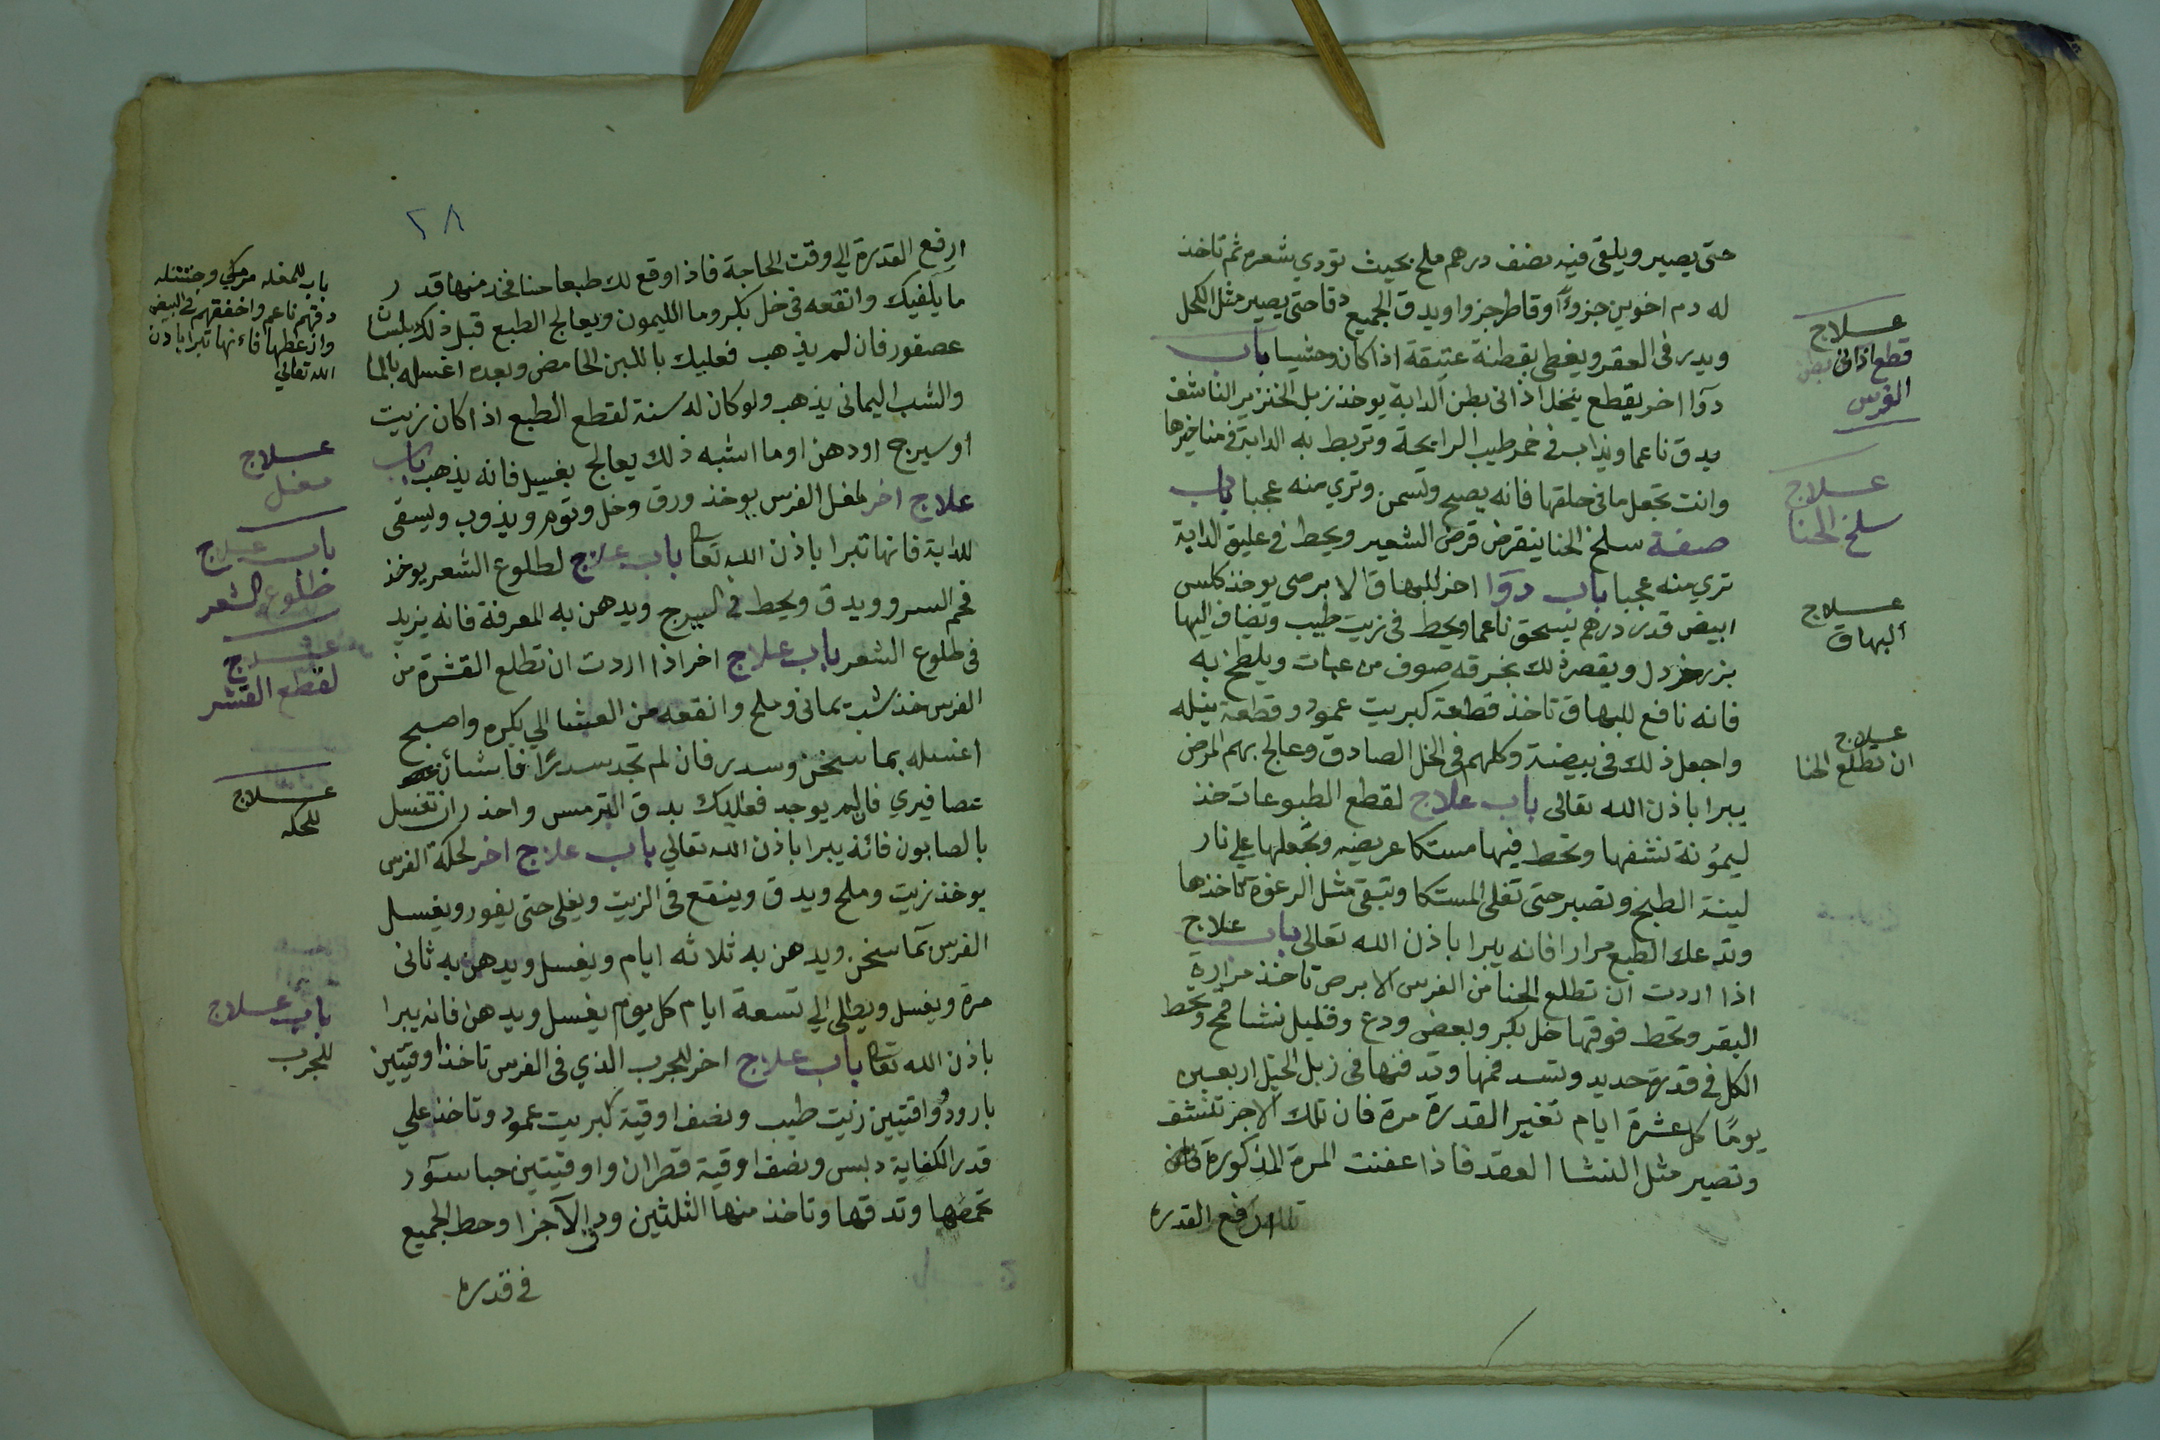 حتى يصير ويلقى فيه نصف درهم ملح بحيث تودي شعره ثم تاخذ
له دم اخوين جزوءً اوقاطر جزوا ويدق الجميع دقا حتى يصير مثل الكحل
ويدر فى العقر ويغطى بقطنة عتيقة اذا كان وحشيا باب
دوا اخر يقطع ينخل اذانى بطن الدابة يوخذ زبل الخنزير الناشف
يدق ناعما ويذاب فى خمر طيب الرايحة وتربط به الدابة فى مناخيرها
وانت تجعل ما فى حلقها فانه يصح وتسمن وتري منه عجبا باب
صفة سلخ الحنا ينقرض قرض الشعير ويحط فى عليق الدابة
تري منه عجبا باب دوا اخر للبهاق الابرصى يوخذ كلس
ابيض قدر درهم يسحق ناعما ويحط فى زيت طيب وتضاف اليها
بزر خردل ويقصر ذلك بخرقه صوف من عبات ويلطخ به
فانه نافع للبهاق تاخذ قطعة كبريت عمود وقطعة نيله
واجعل ذلك فى بيضة وكلهم فى الخل الصادق وعالج بهم المرض
يبرا باذن الله تعالى باب علاج لقطع الطبوعات خذ
ليمونة نشفها وتحط فيها مستكا عريضه وتجعلها علي نار
لينة الطبخ وتصبر حتى تغلى المستكا وتبقى مثل الرغوة تاخذها
وتدعك الطبع مرارا فانه يبرا باذن الله تعالى باب علاج
اذا اردت ان تطلع الحنا من الفرس الابرص تاخذ مرارة
البقر وتحط فوقها خل بكر وبعض ودع وقليل نشا قمح وتحط
الكل فى قدرة حديد وتسد فمها وتدفنها فى زبل الخيل اربعين
يومًا كل عشرة ايام تغير القدرة مرة فان تلك الاجز تنشف
وتصير مثل النشا العقد فاذا عفنت المرة المذكورة
ارفع القدرة
علاج
قطع اذانى بطن
الفرس
علاج
سلخ الحنا
علاج
البهاق
علاج
ان تطلع الحنا
٢٨
ارفع القدرة الي وقت الحاجة فاذا وقع لك طبعا حنا فخذ منها قدر
ما يكفيك وانقعه فى خل بكر وما الليمون ويعالج الطبع قبل ذلك بلبشا
عصفور فان لم يذهب فعليك باللبن الحامض وبعده اغسله بالما
والشب اليمانى يذهب ولو كان له سنة لقطع الطبع اذا كان زيت
او سيرج او دهن او ما اشبه ذلك يعالج بغسيل فانه يذهب باب
علاج اخر لمغل الفرس يوخذ ورق وخل وثوم ويذوب ويسقى
للدابة فانها تبرا باذن الله تعا باب علاج لطلوع الشعر يوخذ
فحم السرو ويدق ويحط فى السيرج ويدهن به المعرفة فانه يزيد
فى طلوع الشعر باب علاج اخر اذا اردت ان تطلع القشرة من
الفرس خذ شب يمانى وملح وانقعه من العشا الي بكره واصبح
اغسله بما سخن وسدر فان لم تجد سدرًا فاشنان
عصافيري فان لم يوجد فعليك بدق الترمس واحذر ان تغسل
بالصابون فانه يبرا باذن الله تعالي باب علاج اخر لحكة الفرس
يوخذ زيت وملح ويدق وينقع فى الزيت ويغلى حتى يفور ويغسل
الفرس بما سخن ويدهن به ثلاثه ايام ويغسل ويدهن به ثانى
مرة ويغسل ويطلى الي تسعة ايام كل يوم يغسل ويدهن فانه يبرا
باذن الله تعا باب علاج اخر للجرب الذي فى الفرس تاخذ اوقيتين
بارود واقيتين زيت طيب ونصف اوقية كبريت عمود وتاخذ علي
قدر الكفاية دبس ونصف اوقية قطران واوقيتين حبا سور
تحمصها وتدقها وتاخذ منها الثلثين ودق الآجزا وحط الجميع
فى قدرة
باب للمغله مرمكي وجنتنله
دقهم ناعم واخفقهم فى البيض
واذعطها فاء نها تبرا باذن
الله تعالي
علاج
مغل
باب علاج
طلوع الشعر
علاج
لقطع القشر
علاج
للحكه
باب علاج
للجرب